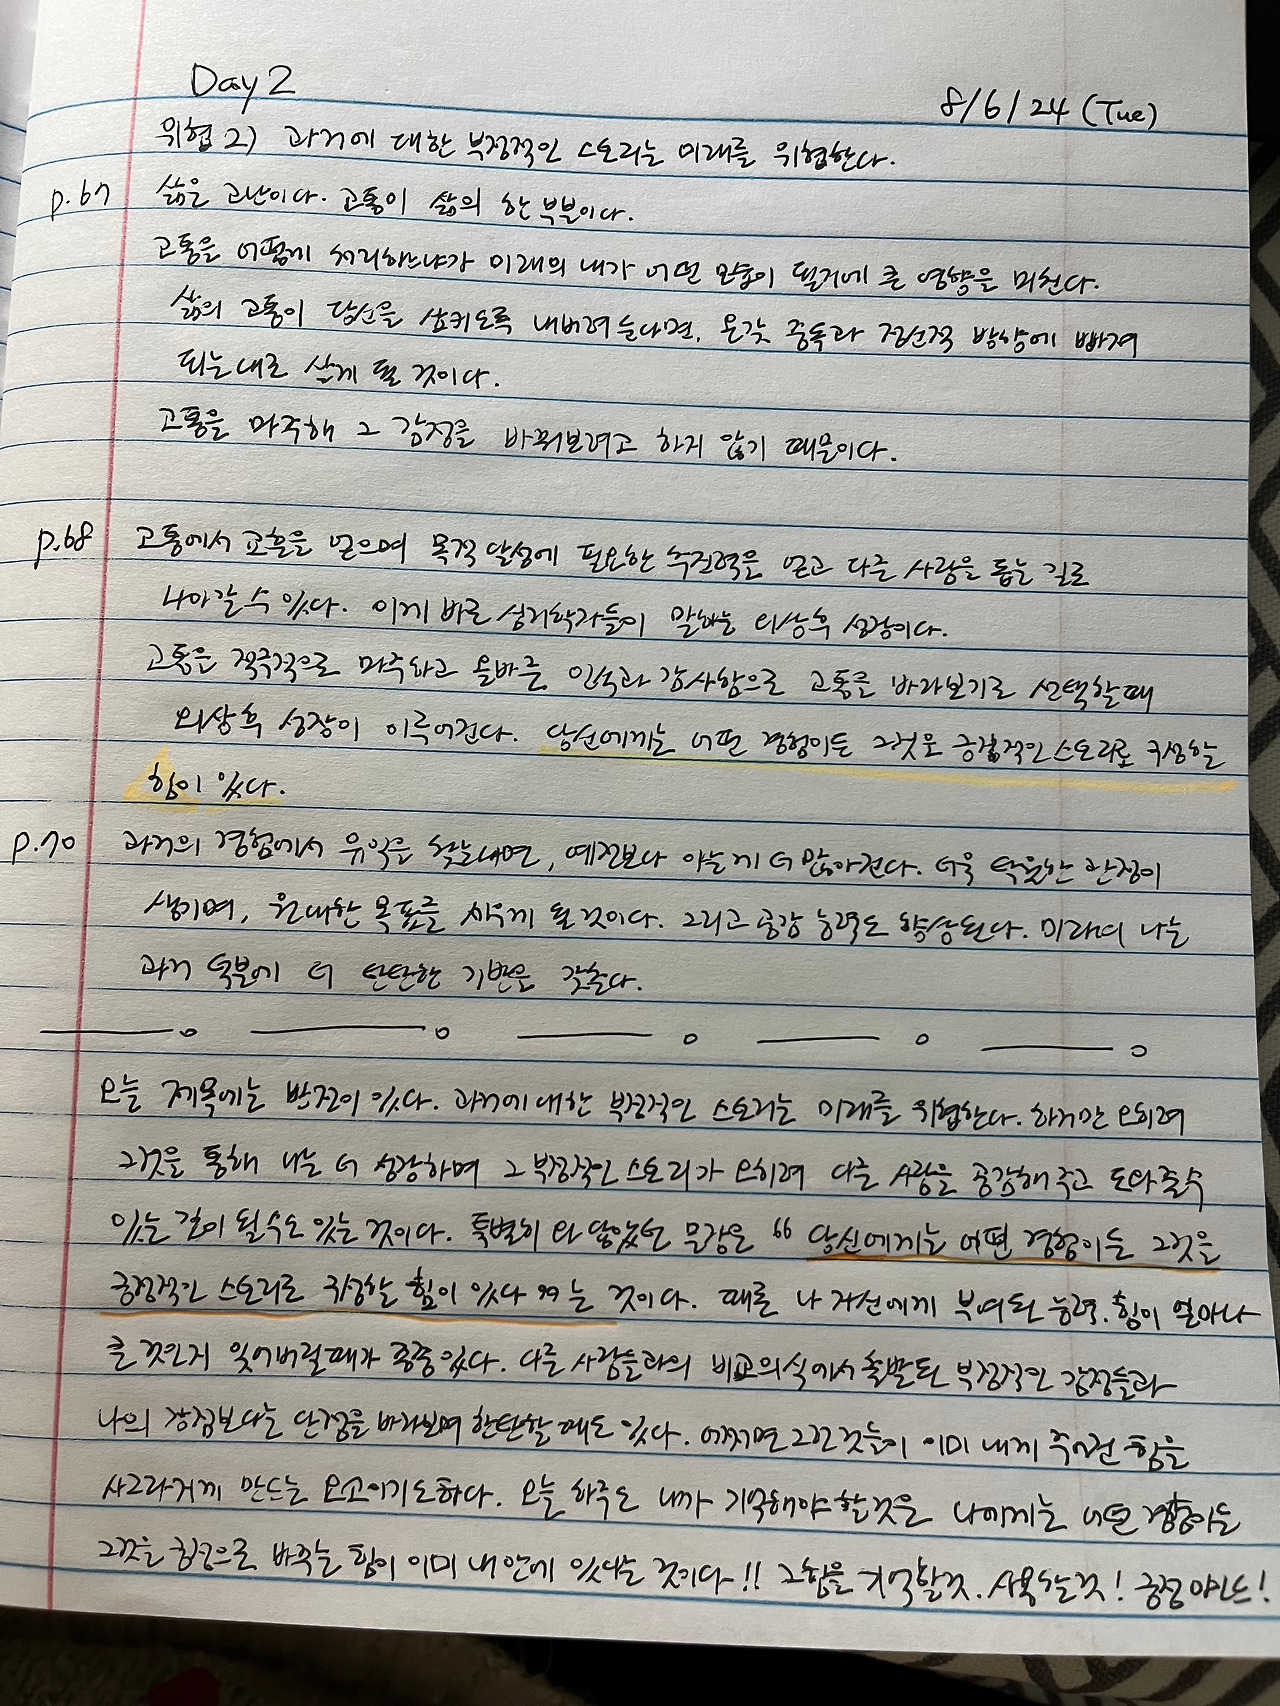 Day 2
8/6/24 (Tue)
위협 2) 과거에 대한 부정적인 스토리는 미래를 위협한다.
p.67 삶은 고난이다. 고통이 삶의 한 부분이다.
고통을 어떻게 처리하느냐가 미래의 내가 어떤 모습이 될거에 큰 영향을 미친다.
삶의 고통이 당신을 삼키도록 내버려 둔다면, 온갖 중독과 방향에 빠져
되는대로 살게 될 것이다.
고통을 마주해 그 감정을 바꿔보려고 하지 않기 때문이다.
p.68 고통에서 교훈을 얻으며 목적 달성에 필요한 추진력을 얻고 다른 사람을 돕는 길로
나아갈 수 있다. 이게 바로 심리학자들이 말하는 외상후 성장이다.
고통을 적극적으로 마주하고 올바른 인식과 감사함으로 고통을 바라보기로 선택할때
외상후 성장이 이루어진다. 당신에게는 어떤 경험이든 그것을 긍정적인 스토리로 구성할
힘이 있다.
p.70 과거의 경험에서 유익을 찾는다면, 예전보다 아는게 더 많아진다. 더욱 관점이
생기며, 원대한 목표를 세우게 될 것이다. 그리고 공감 능력도 향상된다. 미래의 나는
과거 덕분에 더 탄탄한 기반을 갖춘다.
오늘 제목에는 반전이 있다. 과거에 대한 부정적인 스토리는 미래를 위협한다. 하지만 오히려
그것을 통해 나는 더 성장하며 그 부정적인 스토리가 오히려 다른 사람을 공감해 주고 도와줄 수
있는 길이 될 수도 있는 것이다. 특별히 와 닿았던 문장은 “당신에게는 어떤 경험이든 그것을
긍정적인 스토리로 구성할 힘이 있다”는 것이다. 때론 나 자신에게 부여된 능력. 힘이 얼마나
큰 것인지 잊어버릴때가 종종 있다. 다른 사람들과의 비교의식에서 출발된 부정적인 감정들과
나의 강점보다는 단점을 바라보며 한탄할 때도 있다. 어쩌면 그런것들이 이미 내게 주어진 힘을
사그라지게 만드는 요소이기도하다. 오늘 하루도 내가 기억해야 할것은 나에게는 어떤 경험이든
그것을 힘으로 바꾸는 힘이 이미 내 안에 있다는 것이다!! 그 힘을 기억할것. 사용하는것! 긍정 마인드!